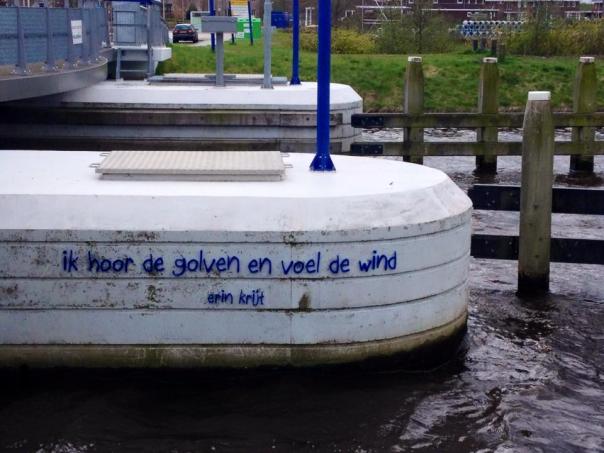 ik hoor de golven en voel de wind
erin krijt